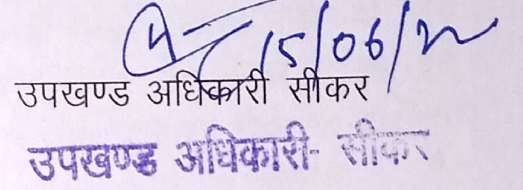 15/06/22
उपखण्ड अधिकारी सीकर
उपखण्ड अधिकारी- सीकर